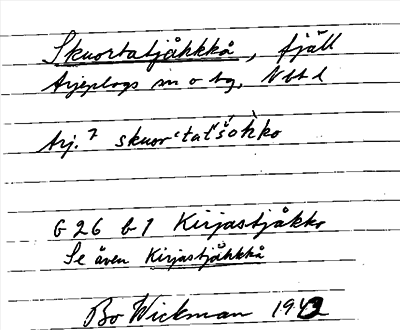 Skuortatjåhkkå, fjäll
Arjeplogs sn o tg, Nbtl
Arj. 7 skuorʻtatʹšoh̀ko
G 26 b 1 Kirjastjåkko
Se även Kirjastjåhkkå
Bo Wickman 1942